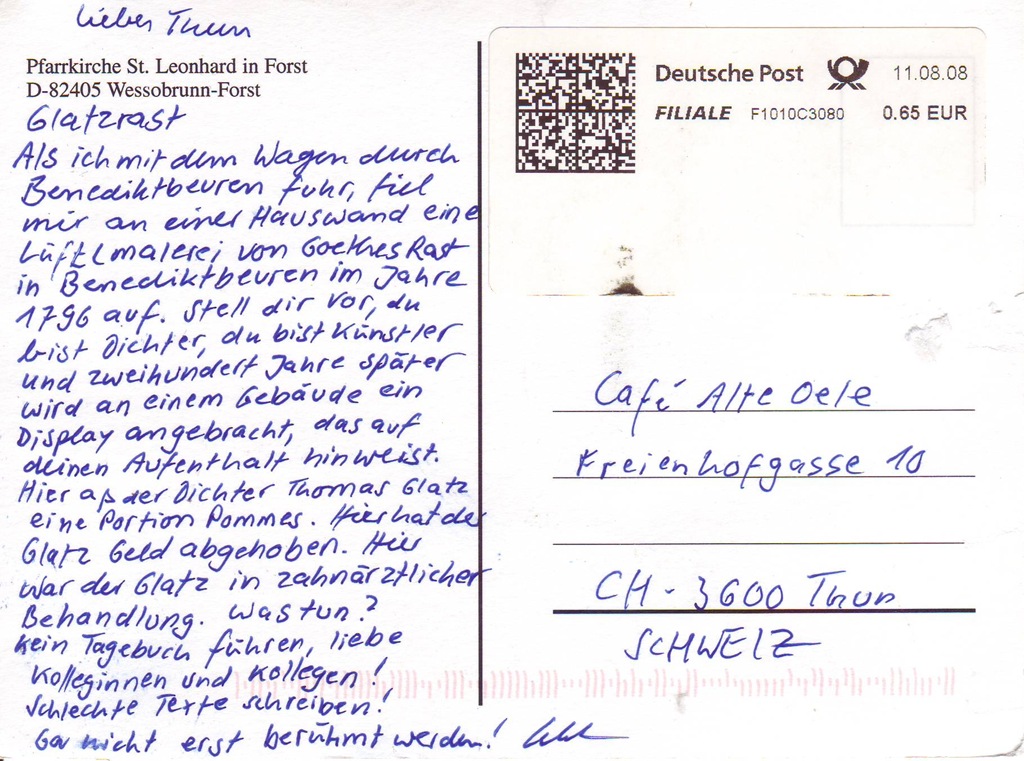 Lieber Thun
Pfarrkirche St. Leonhard in Forst
D-82405 Wessobrunn-Forst
Glatzrast
Als ich mit dem Wagen durch
Benediktbeuren fuhr, fiel
mir an einer Hauswand eine
Lüftlmalerei von Goethes Rast
in Benediktbeuren im Jahre
1796 auf. Stell dir vor, du
bist Dichter, du bist Künstler
und zweihundert Jahre später
wird an einem Gebäude ein
Display angebracht, das auf
deinen Aufenthalt hinweist.
Hier aß der Dichter Thomas Glatz
eine Portion Pommes. Hier hat der
Glatz Geld abgehoben. Hier
war der Glatz in zahnärztlicher
Behandlung. Was tun?
Kein Tagebuch führen, liebe
Kolleginnen und Kollegen!
Schlechte Texte schreiben!
Gar nicht erst berühmt werden!
Deutsche Post 11.08.08
FILIALE F1010C3080 0.65 EUR
Café Alte Oele
Freienhofgasse 10
CH - 3600 Thun
SCHWEIZ